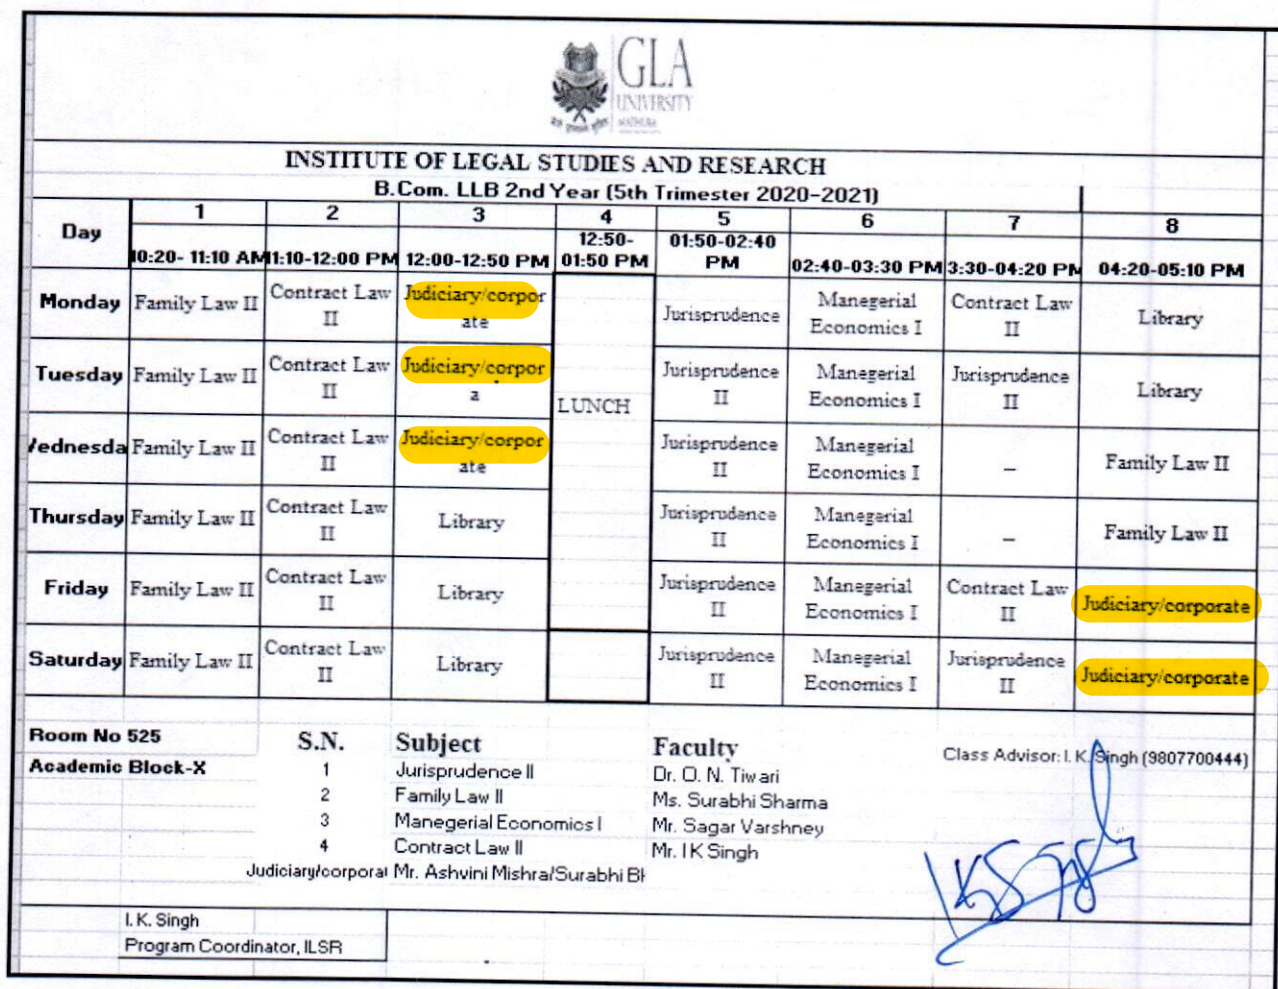 GLA
UNIVERSITY
MATHURA
INSTITUTE OF LEGAL STUDIES AND RESEARCH
B.Com. LLB 2nd Year (5th Trimester 2020-2021)
Day 1 2 3 4 5 6 7 8
10:20- 11:10 AM 11:10-12:00 PM 12:00-12:50 PM 12:50-01:50 PM 01:50-02:40 PM 02:40-03:30 PM 3:30-04:20 PM 04:20-05:10 PM
Monday Family Law II Contract Law II Judiciary/corporate Jurisprudence Manegerial Economics I Contract Law II Library
Tuesday Family Law II Contract Law II Judiciary/corpor a LUNCH Jurisprudence II Manegerial Economics I Jurisprudence II Library
Wednesda Family Law II Contract Law II Judiciary/corporate Jurisprudence II Manegerial Economics I – Family Law II
Thursday Family Law II Contract Law II Library Jurisprudence II Manegerial Economics I – Family Law II
Friday Family Law II Contract Law II Library Jurisprudence II Manegerial Economics I Contract Law II Judiciary/corporate
Saturday Family Law II Contract Law II Library Jurisprudence II Manegerial Economics I Jurisprudence II Judiciary/corporate
Room No 525
Academic Block-X
S.N. Subject Faculty
1 Jurisprudence II Dr. O. N. Tiwari
2 Family Law II Ms. Surabhi Sharma
3 Manegerial Economics I Mr. Sagar Varshney
4 Contract Law II Mr. I K Singh
Judiciary/corporat Mr. Ashvini Mishra/Surabhi Bh
Class Advisor: I. K. Singh (9807700444)
IKSingh
I. K. Singh
Program Coordinator, ILSR